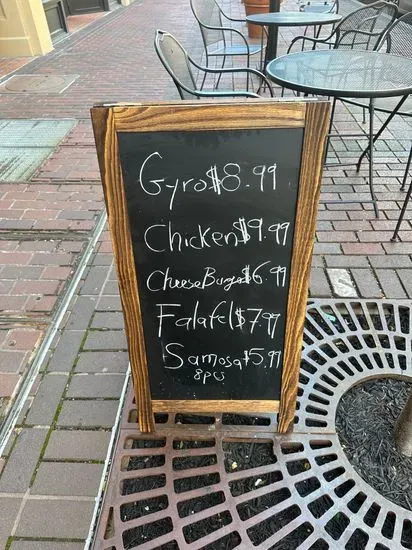 Gyro $8.99
Chicken $9.99
CheeseBurger $6.99
Falafel $7.99
Samosa $5.99
8pcs